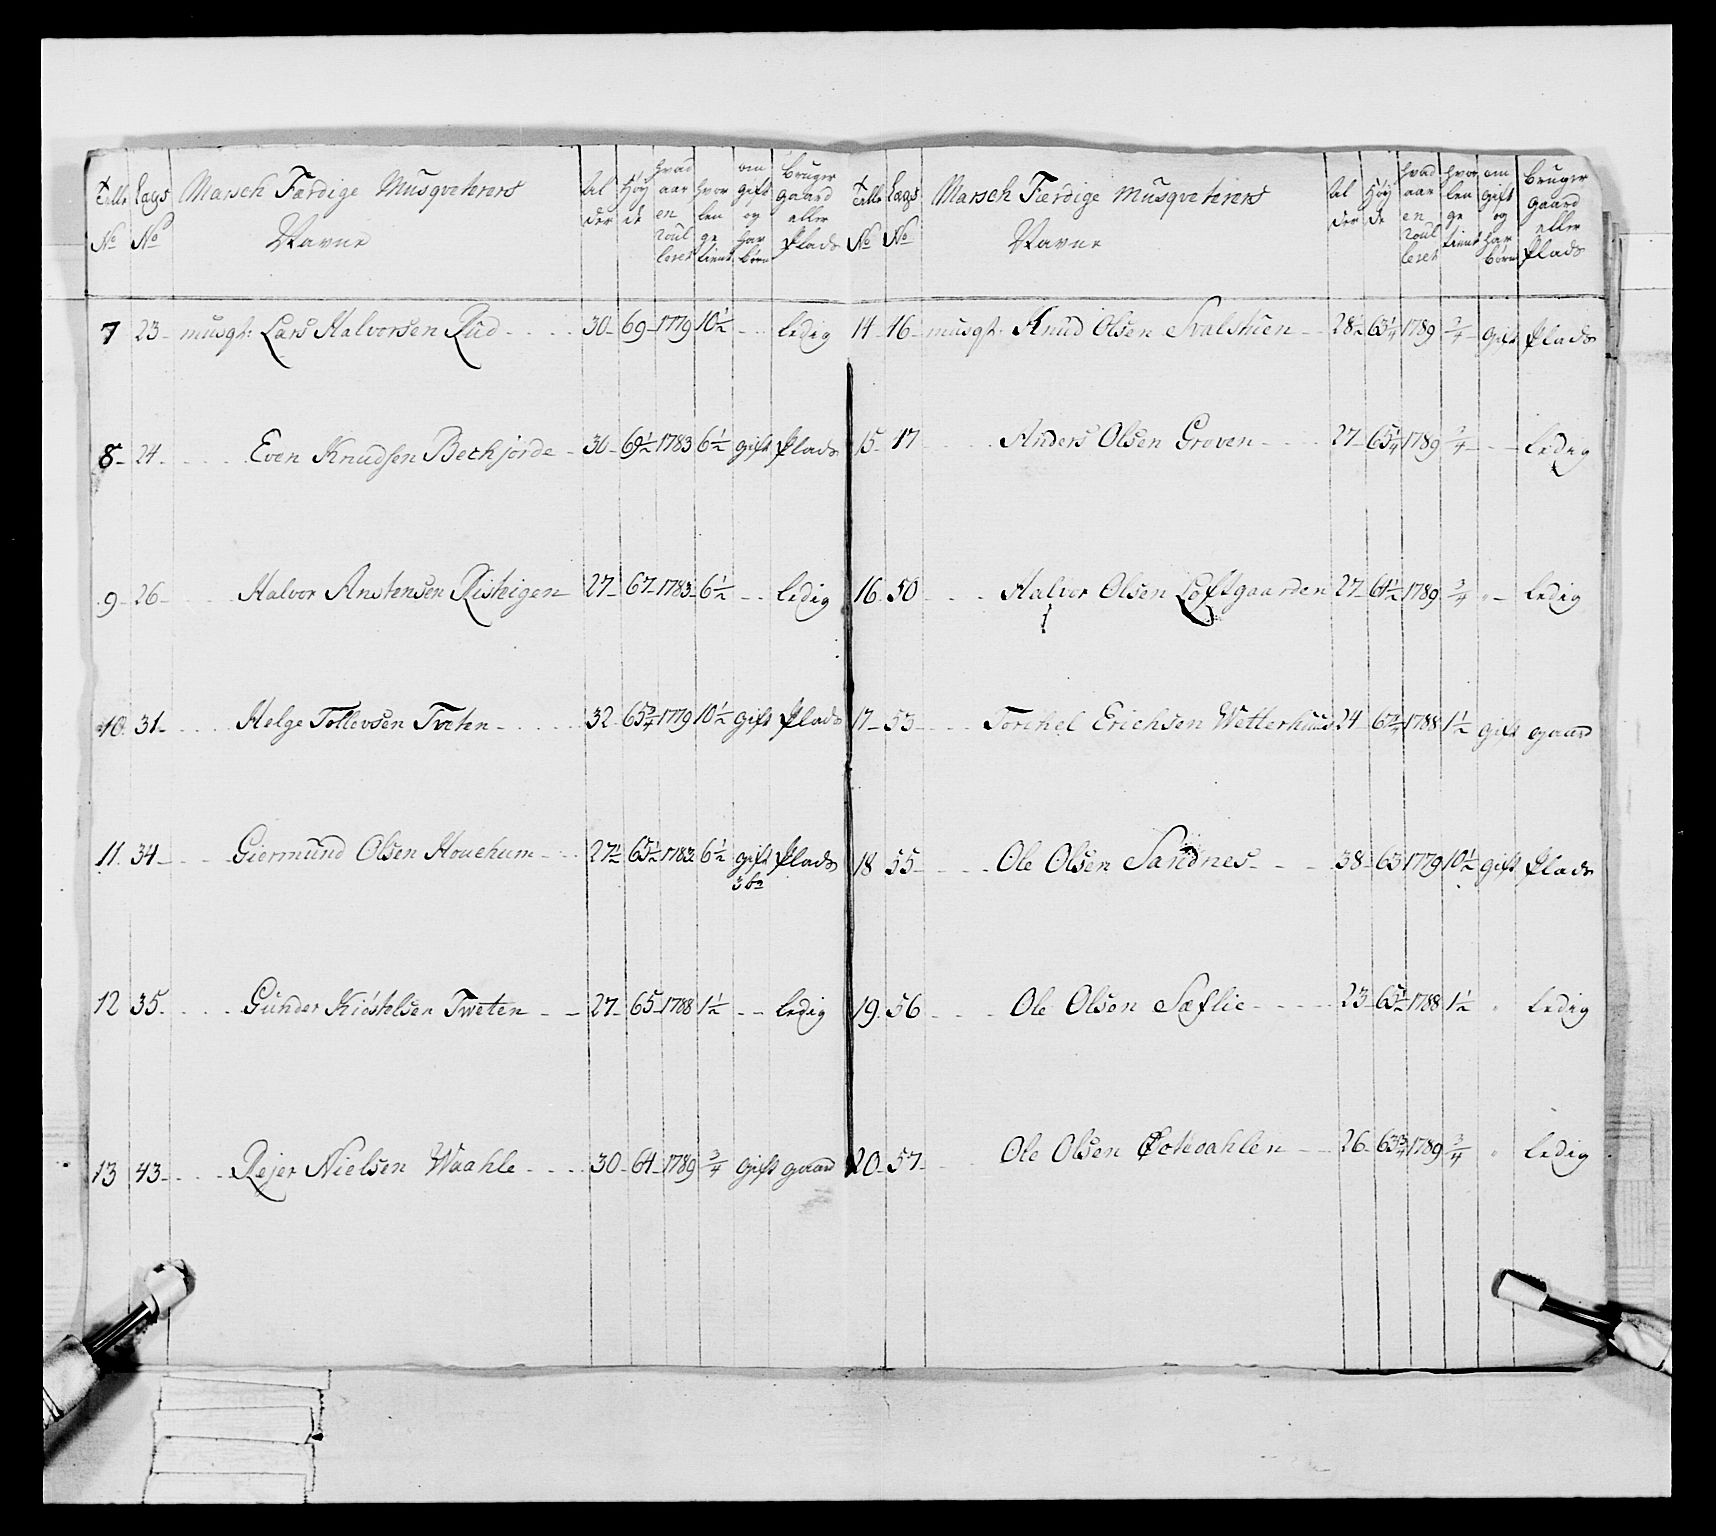 Tælle No | Lægs No | Marsch Færdige Musqveterers Navne | Alder | Høyde | hvad aar enroulleret | hvor lenge tient | om gift og har børn | Bruger gaard eller Plads
7 23 musqt: Lars Halvorsen Rud 30 69 1779 10½ ledig
8 24 Even Knudsen Bechjorde 30 69½ 1783 6½ gift Plads
9 26 Halvor Anstensen Risteigen 27 67 1783 6½ ledig
10 31 Helge Tollevsen Tveten 32 65¾ 1779 10½ gift Plads
11 34 Giermund Olsen Houehum 27½ 65½ 1783 6½ gift 3 bn Plads
12 35 Gunder Kiøstelsen Tweten 27 65 1788 1½ ledig
13 43 Rejer Nielsen Waahle 30 64 1789 ¾ gift gaard
Tælle No | Lægs No | Marsch Færdige Musqveterers Navne | Alder | Høyde | hvad aar enroulleret | hvor lenge tient | om gift og har børn | Bruger gaard eller Plads
14 16 musqt: Knud Olsen Svalstuen 28½ 63¼ 1789 ¾ gift Plads
15 17 Anders Olsen Groven 27 65¼ 1789 ¾ ledig
16 50 Halvor Olsen Loftgaarden 27 64½ 1789 ¾ ledig
17 53 Torchel Erichsen Wetterhuus 24 1788 1½ gift gaard
18 55 Ole Olsen Sandnes 38 63 1779 10½ gift Plads
19 56 Ole Olsen Sæflie 23 65½ 1788 1½ ledig
20 57 Ole Olsen 26 63¾ 1789 ¾ ledig